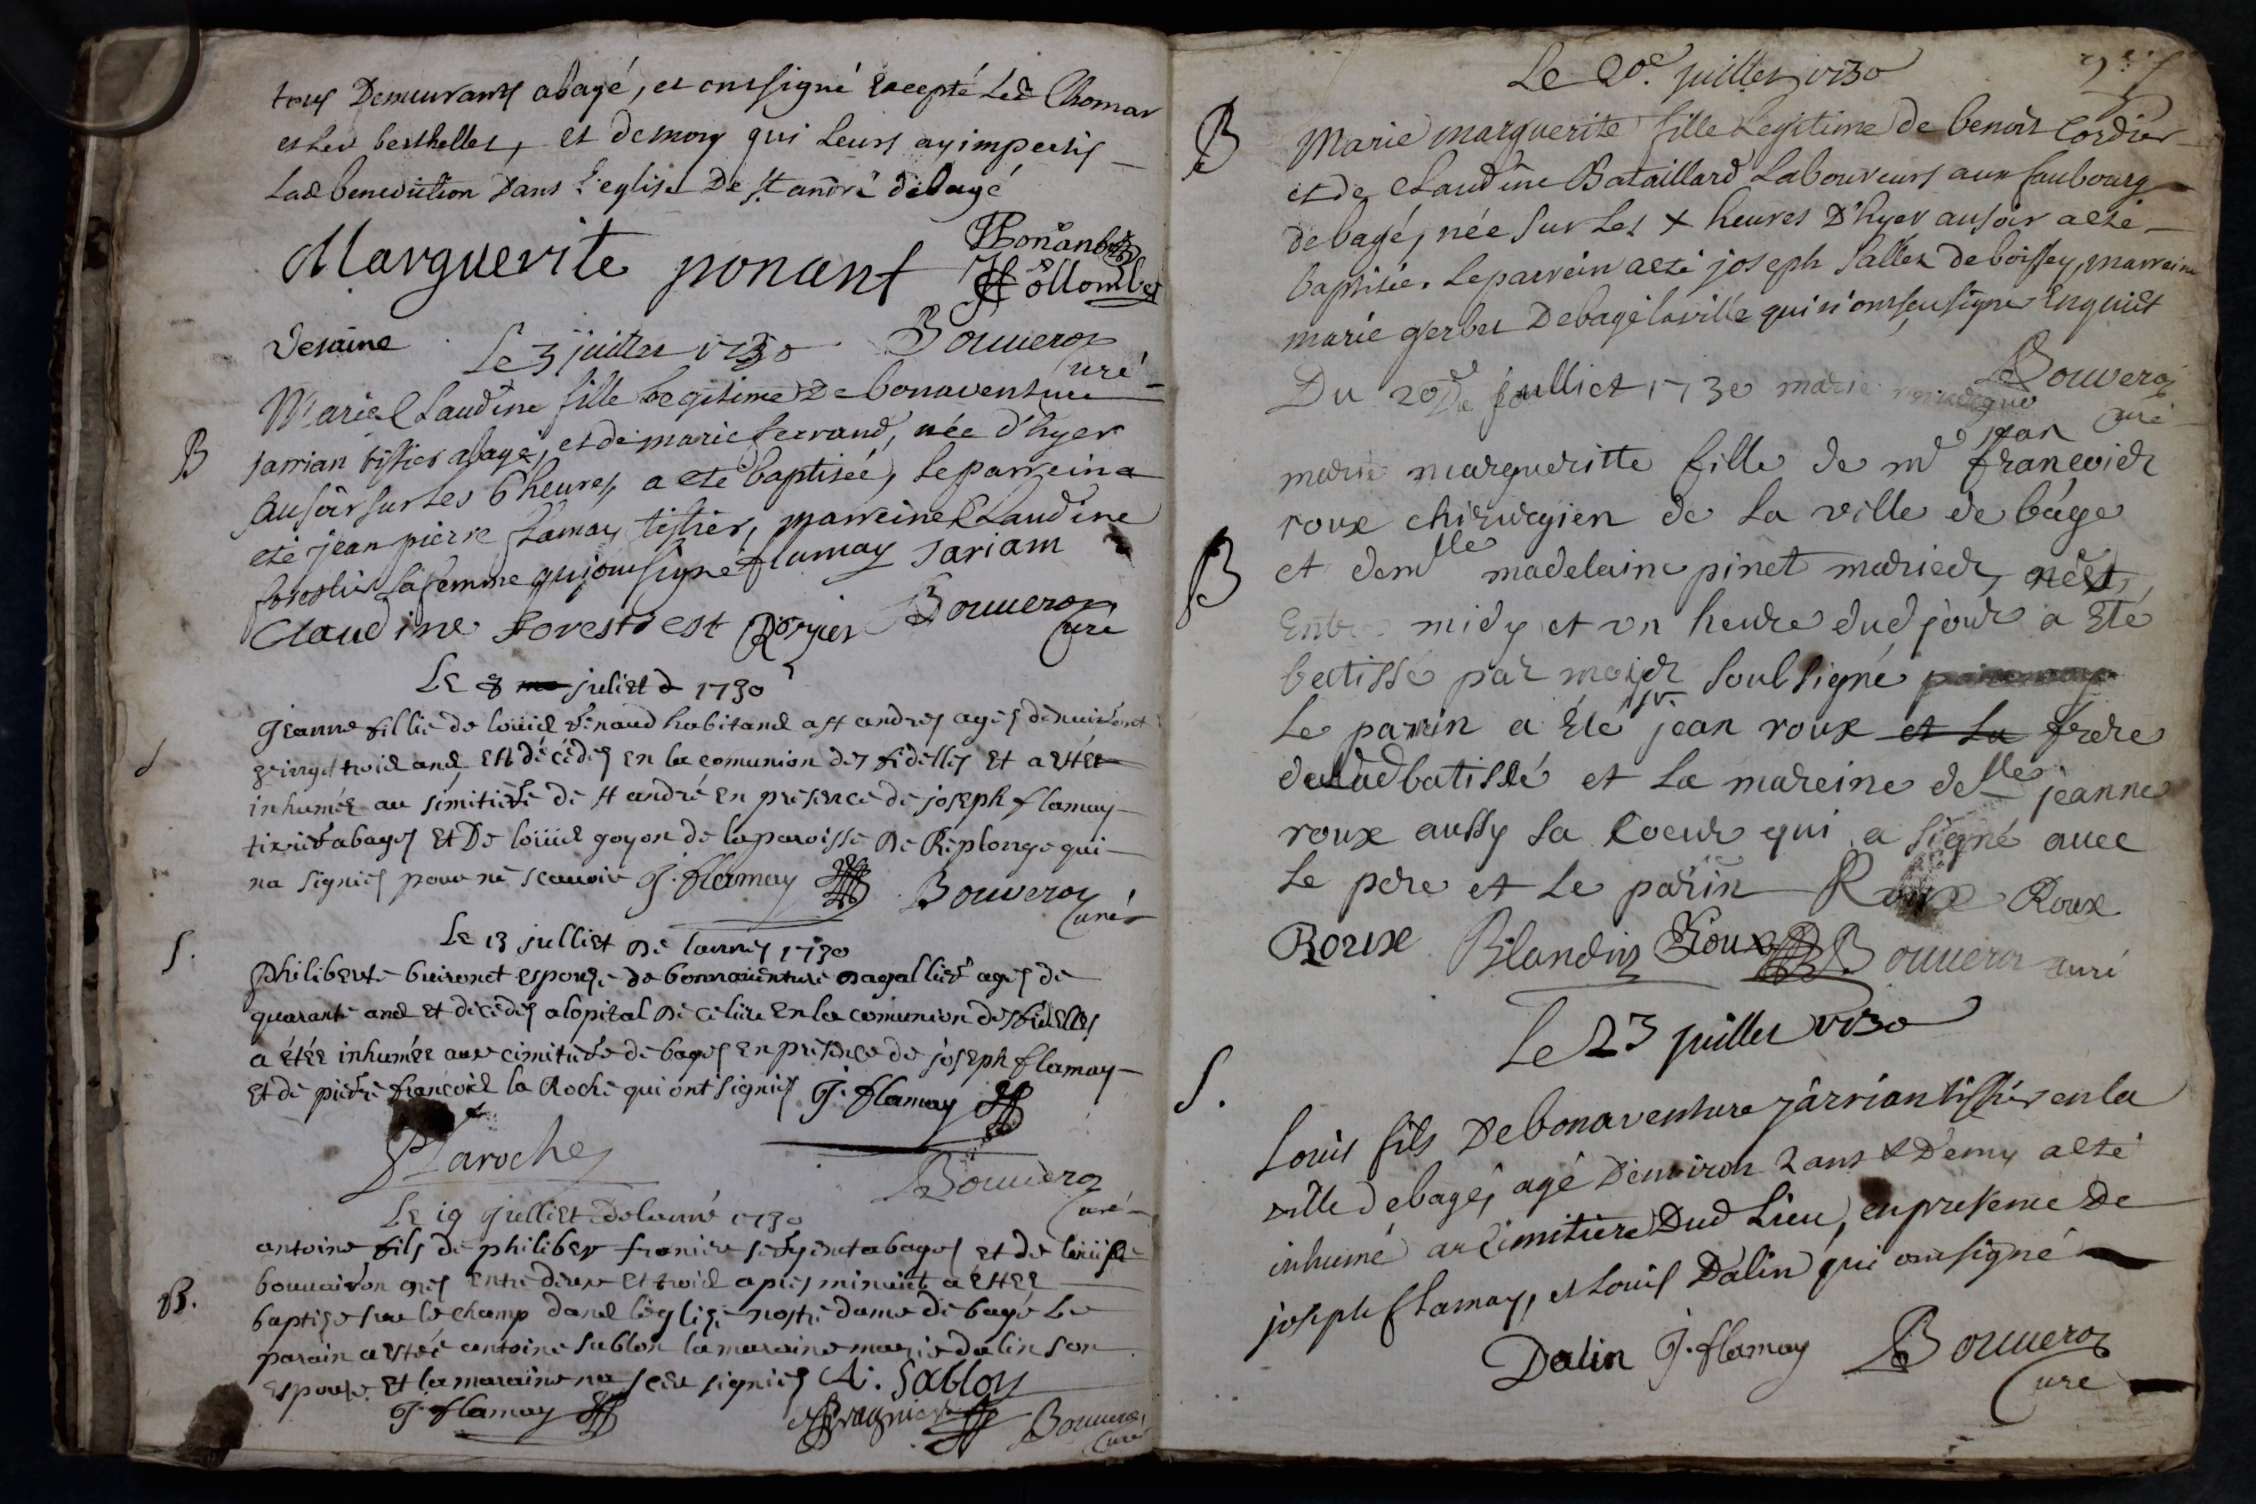 tous Demeurants abagé, et ont signé Excepté Led Thomas
et Led berthellet, et de moy qui Leurs ay imperti
Lad benediction Dans L'eglise De st andré de bagé
Marguerite ponant
Bouveroz
Curé
Le 3 juillet 1730
Marie Claudine fille Legitime De bonaventure
B
jarrian tissier abagé, et de marie ferrand, née d'hyer
au soir sur Les 6 heures, a eté baptisée, Le parrein a
eté jean pierre flamay tissier, marreine Claudine
forestier sa femme qui ont signé flamay jariam
Claudine forestiest
Bouveroz
Curé
Le 8 juliet 1730
Jeanne fillie de louis Renaud habitand a st andrez agés denviront
vingt troid and Est décédés En la comunion des fidelles Et a Etée
inhumée au simitière de st andré En présence de joseph flamay
tixier abagés Et De louis goyon de la paroisse De Replonge qui
na signiés pour ne scavoir J. flamay Bouveroz
Curé
S.
Le 13 julliet De lannés 1730
philiberte buironet espouse de bonnaventure agés de
quarante and Et décédés alopital De ce lieu En la comunion des fidelles
a étée inhumée aux cimitière de bages En présence de joseph flamay
Et de pierre françoid la Roche qui ont signiés J. flamay
P Laroche
Bouveroz
Curé
Le 19 Julliet de lanné 1730
antoine fils de philiber abagés et de louise
B.
bouvairon nés Entre deux Et troid après minuit a Etée
baptize sur le champ dand léglize nostre dame de bagé Le
parain a Etéé antoine sablon la maraine marie dalin son
Espouse Et la maraine na sceu signiés A. Sablon
J. flamay
Bouveroz
Curé
Le 20e. juillet 1730
B
Marie marguerite fille Legitime de benoit Cordier
et de Claudine Bataillard Laboureurs aux faubourg
de bagé, née sur Les X heures D'hyer au soir a eté
baptisée. Le parrein a eté joseph Sallet de boissey, marreine
marie gerbet De bagé la ville qui n'ont sçeu signer Enquist
Bouveroz
Curé
Du 20 de julliet 1730 marie
marie margueritte fille de mr jean francoidz
roux chirurgien de la ville de bâge
B
et demlle madelaine pinet mariedz, néé
Entre midy et un heure dud jour a Eté
batissé par moy soussigné
Le parrin a Eté sr. jean roux et La frere
de Lad batissé et La mareine dlle jeanne
roux aussy sa soeur qui a signé avec
Le pere et Le parin Roux Roux
Roux Blandin Roux Bouveroz curé
Le 23 juillet 1730
S.
Louis fils De bonaventure jarrian tissier en la
ville de bagé, agé D'environ 2 ans & Demy a eté
inhumé au Cimitiere Dud Lieu, en presence De
joseph flamay, et Louis Dalin qui ont signé
Dalin J. flamay Bouveroz
Curé